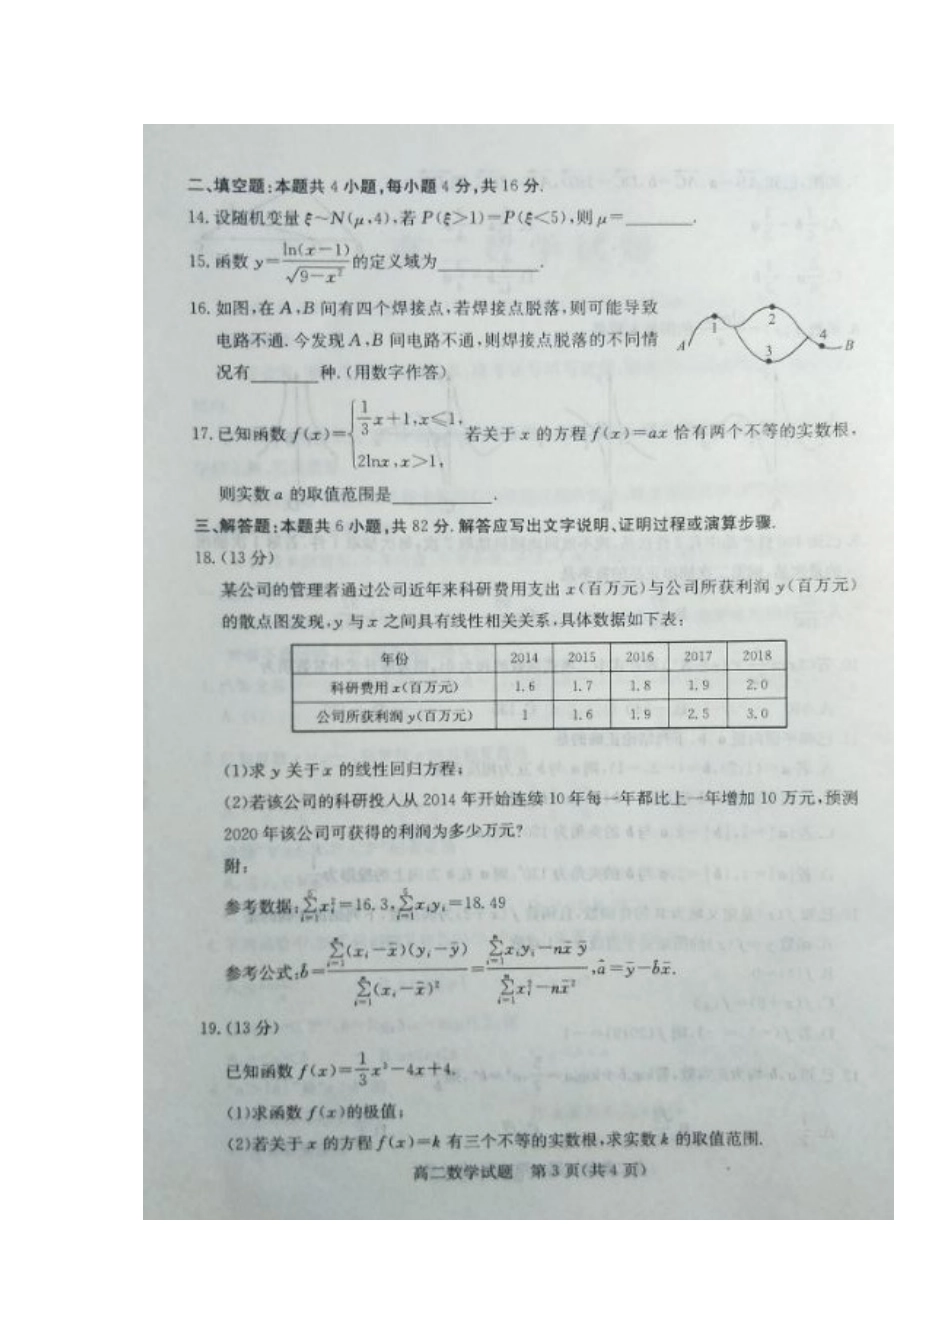 二、填空题:本题共 4 小题,每小题 4 分,共 16 分.
14. 设随机变量 ξ~N(μ,4),若 P(ξ>1)=P(ξ<5),则 μ=________.
15. 函数 y=ln(x-1)/√(9-x²) 的定义域为________.
16. 如图,在 A,B 间有四个焊接点,若焊接点脱落,则可能导致
电路不通. 今发现 A,B 间电路不通,则焊接点脱落的不同情
况有________种.(用数字作答)
A 1 2 3 4 B
17. 已知函数 f(x)={1/3x+1,x≤1, 2lnx,x>1, 若关于 x 的方程 f(x)=ax 恰有两个不等的实数根,
则实数 a 的取值范围是________.
三、解答题:本题共 6 小题,共 82 分. 解答应写出文字说明、证明过程或演算步骤.
18. (13 分)
某公司的管理者通过公司近年来科研费用支出 x(百万元)与公司所获利润 y(百万元)
的散点图发现,y 与 x 之间具有线性相关关系,具体数据如下表:
年份 2014 2015 2016 2017 2018
科研费用 x(百万元) 1.6 1.7 1.8 1.9 2.0
公司所获利润 y(百万元) 1 1.6 1.9 2.5 3.0
(1)求 y 关于 x 的线性回归方程;
(2)若该公司的科研投入从 2014 年开始连续 10 年每一年都比上一年增加 10 万元,预测
2020 年该公司可获得的利润为多少万元?
附:
参考数据:∑(i=1→5)xᵢ²=16.3,∑(i=1→5)xᵢyᵢ=18.49
参考公式:b̂=∑(i=1→n)(xᵢ-x̄)(yᵢ-ȳ)/∑(i=1→n)(xᵢ-x̄)²=(∑(i=1→n)xᵢyᵢ-nx̄ȳ)/(∑(i=1→n)xᵢ²-nx̄²),â=ȳ-b̂x̄.
19. (13 分)
已知函数 f(x)=1/3x³-4x+4.
(1)求函数 f(x)的极值;
(2)若关于 x 的方程 f(x)=k 有三个不等的实数根,求实数 k 的取值范围.
高二数学试题 第 3 页(共 4 页)